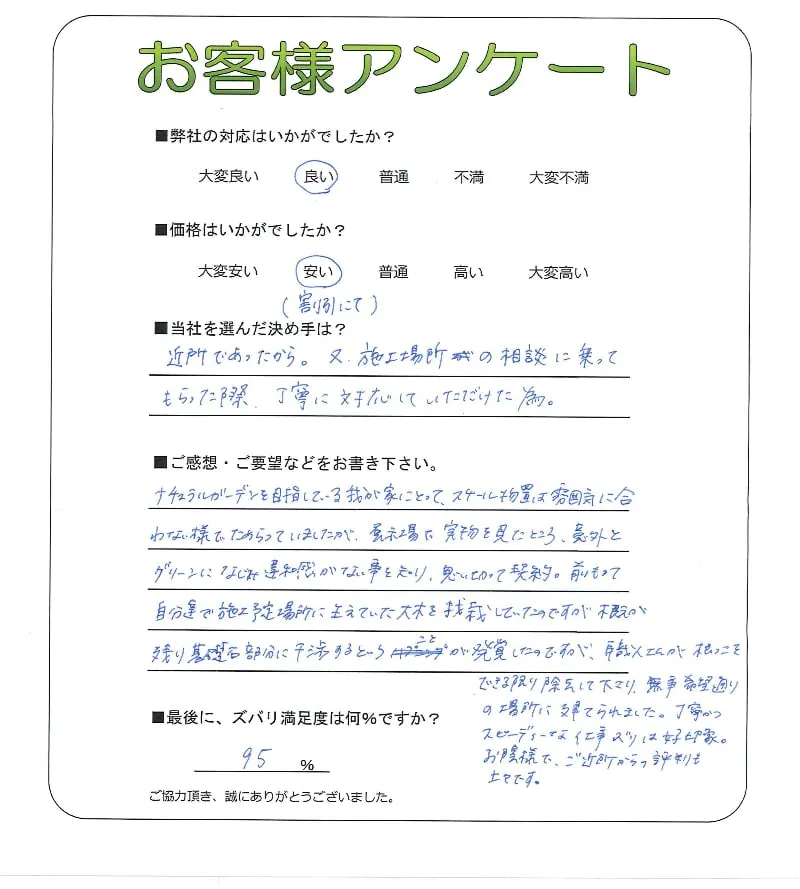 お客様アンケート
■弊社の対応はいかがでしたか？
大変良い 良い 普通 不満 大変不満
■価格はいかがでしたか？
大変安い 安い 普通 高い 大変高い
(割引にて)
■当社を選んだ決め手は？
近所であったから。又、施工場所の相談に乗って
もらった際、丁寧に対応していただけた為。
■ご感想・ご要望などをお書き下さい。
ナチュラルガーデンを目指している我が家にとって、スチール物置は雰囲気に合
わない様でためらっていましたが、展示場で実物を見たところ、意外と
グリーンになじみ違和感がない事を知り、思い切って契約。前もって
自分達で施工予定場所に生えていた大木を伐栽していたのですが根っこが
残り基礎石部分に干渉するということが発覚したのですが、職人さんが根っこを
できる限り除去して下さり、無事希望通り
の場所に建てられました。丁寧かつ
スピーディーな仕事ぶりは好印象。
お陰様で、ご近所からの評判も
上々です。
■最後に、ズバリ満足度は何%ですか？
95 %
ご協力頂き、誠にありがとうございました。